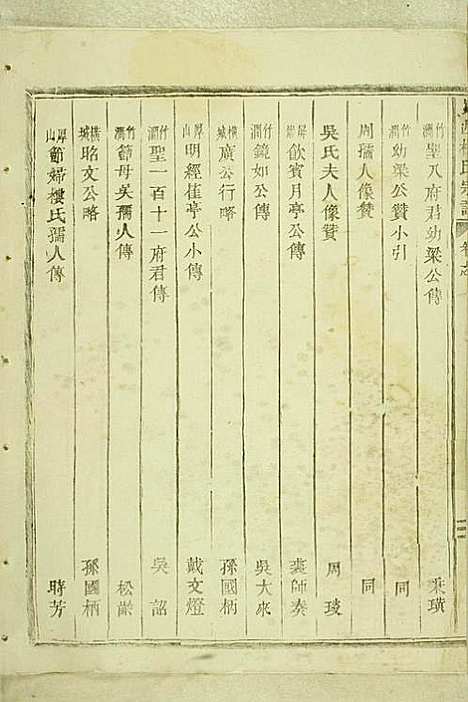 竹澗聖八府君幼梁公傳 秉璜
竹澗幼梁公贊小引 同
周孺人像贊 同
吳氏夫人像贊 周琰
岸山飲賓月亭公傳 裘師奏
竹澗鏡如公傳 吳大來
橫城廣公行略 孫國柄
岸山明經佳亭公小傳 戴文燈
竹澗聖一百十一府君傳 吳詔
竹澗節母吳孺人傳 松齡
橫城昭文公略 孫國柄
岸山節婦樓氏孺人傳 時芳